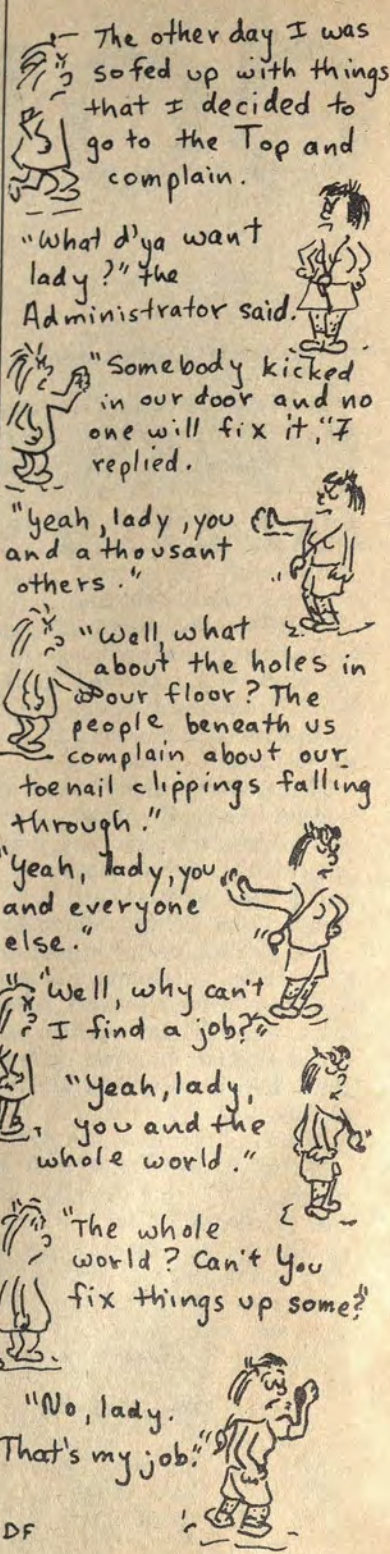 The other day I was
so fed up with things
that I decided to
go to the Top and
complain.
"What d'ya want
lady?" the
Administrator said.
"Somebody kicked
in our door and no
one will fix it," I
replied.
"Yeah, lady, you
and a thousant
others."
"Well, what
about the holes in
our floor? The
people beneath us
complain about our
toenail clippings falling
through."
"Yeah, lady, you
and everyone
else."
"Well, why can't
I find a job?"
"Yeah, lady,
you and the
whole world."
"The whole
world? Can't you
fix things up some?"
"No, lady.
That's my job."
DF